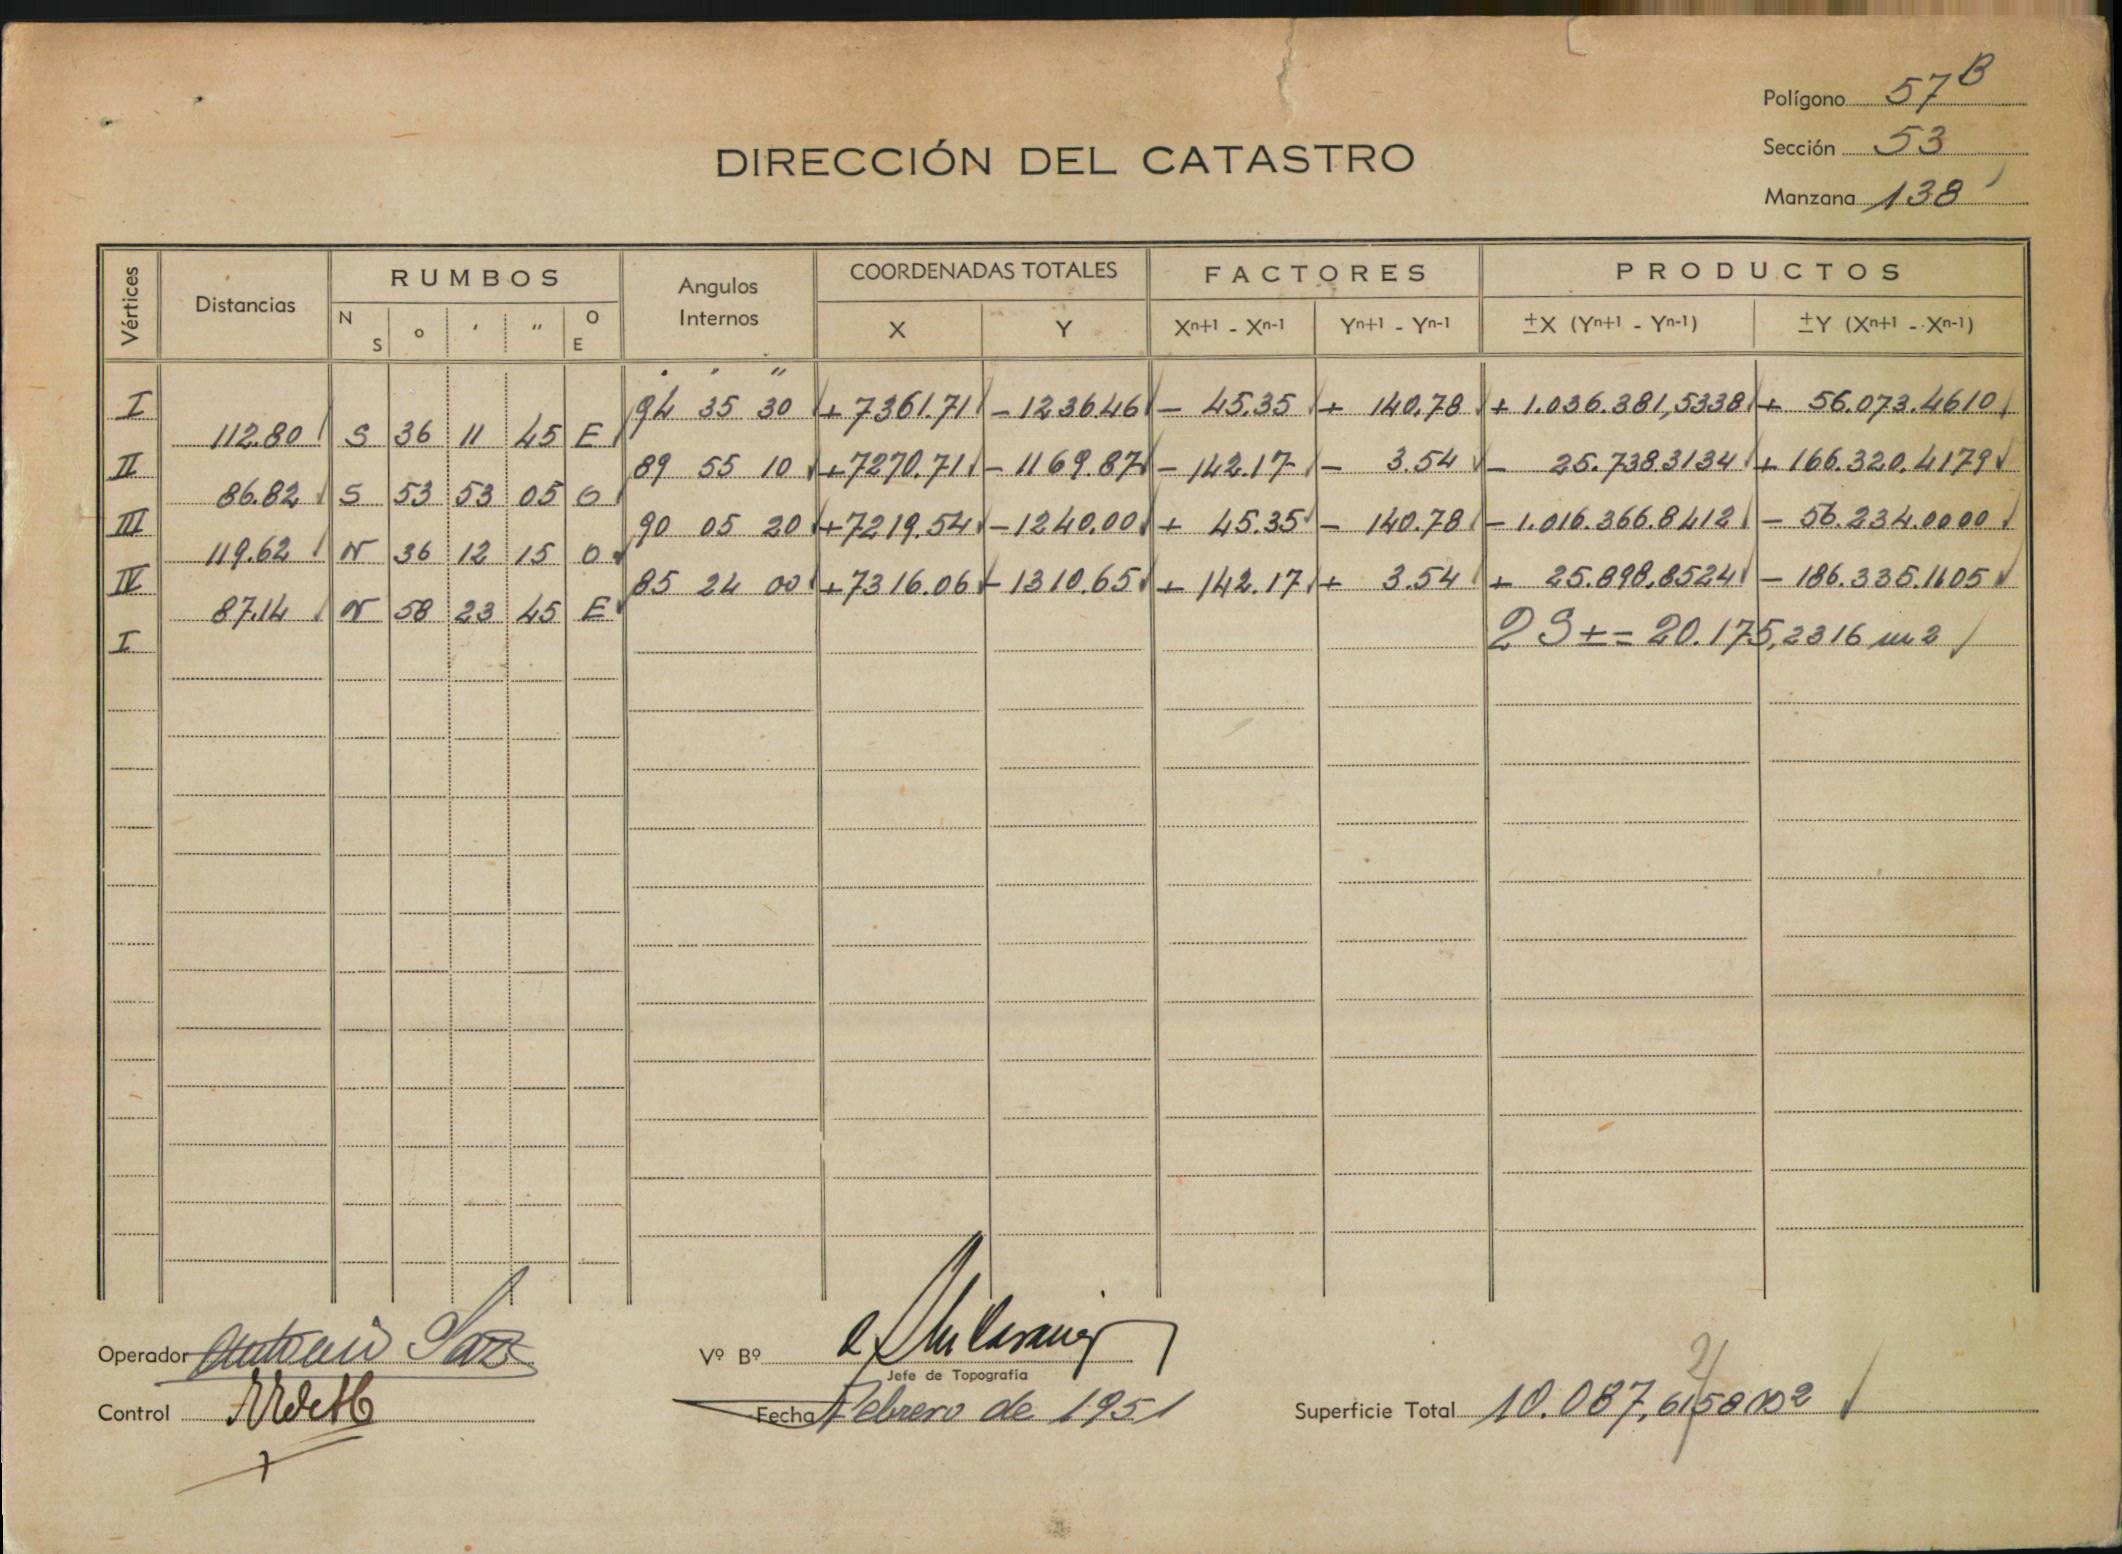 Polígono 57 B
Sección 53
Manzana 138
DIRECCIÓN DEL CATASTRO
Vértices Distancias RUMBOS Angulos Internos COORDENADAS TOTALES FACTORES PRODUCTOS
N S o ' " O E X Y Xn+1 - Xn-1 Yn+1 - Yn-1 ±X (Yn+1 - Yn-1) ±Y (Xn+1 - Xn-1)
I 94 35 30 +7361.71 -1236.46 - 45.35 + 140.78 + 1.036.381,5338 + 56.073.4610
112.80 S 36 11 45 E
II 89 55 10 +7270.71 - 1169.87 - 142.17 - 3.54 - 25.738.3134 + 166.320.4179
86.82 S 53 53 05 O
III 90 05 20 +7219.54 -1240.00 + 45.35 - 140.78 - 1.016.366.8412 - 56.234.0000
119.62 N 36 12 15 O
IV 85 24 00 +7316.06 - 1310.65 + 142.17 + 3.54 + 25.898,8524 - 186.335.1105
87.14 N 58 23 45 E
I 2 S ± = 20.175,2316 m2
Operador Antonio
Vº Bº
Jefe de Topografía
Control
Fecha Febrero de 1951
Superficie Total 10.087,6158 m2